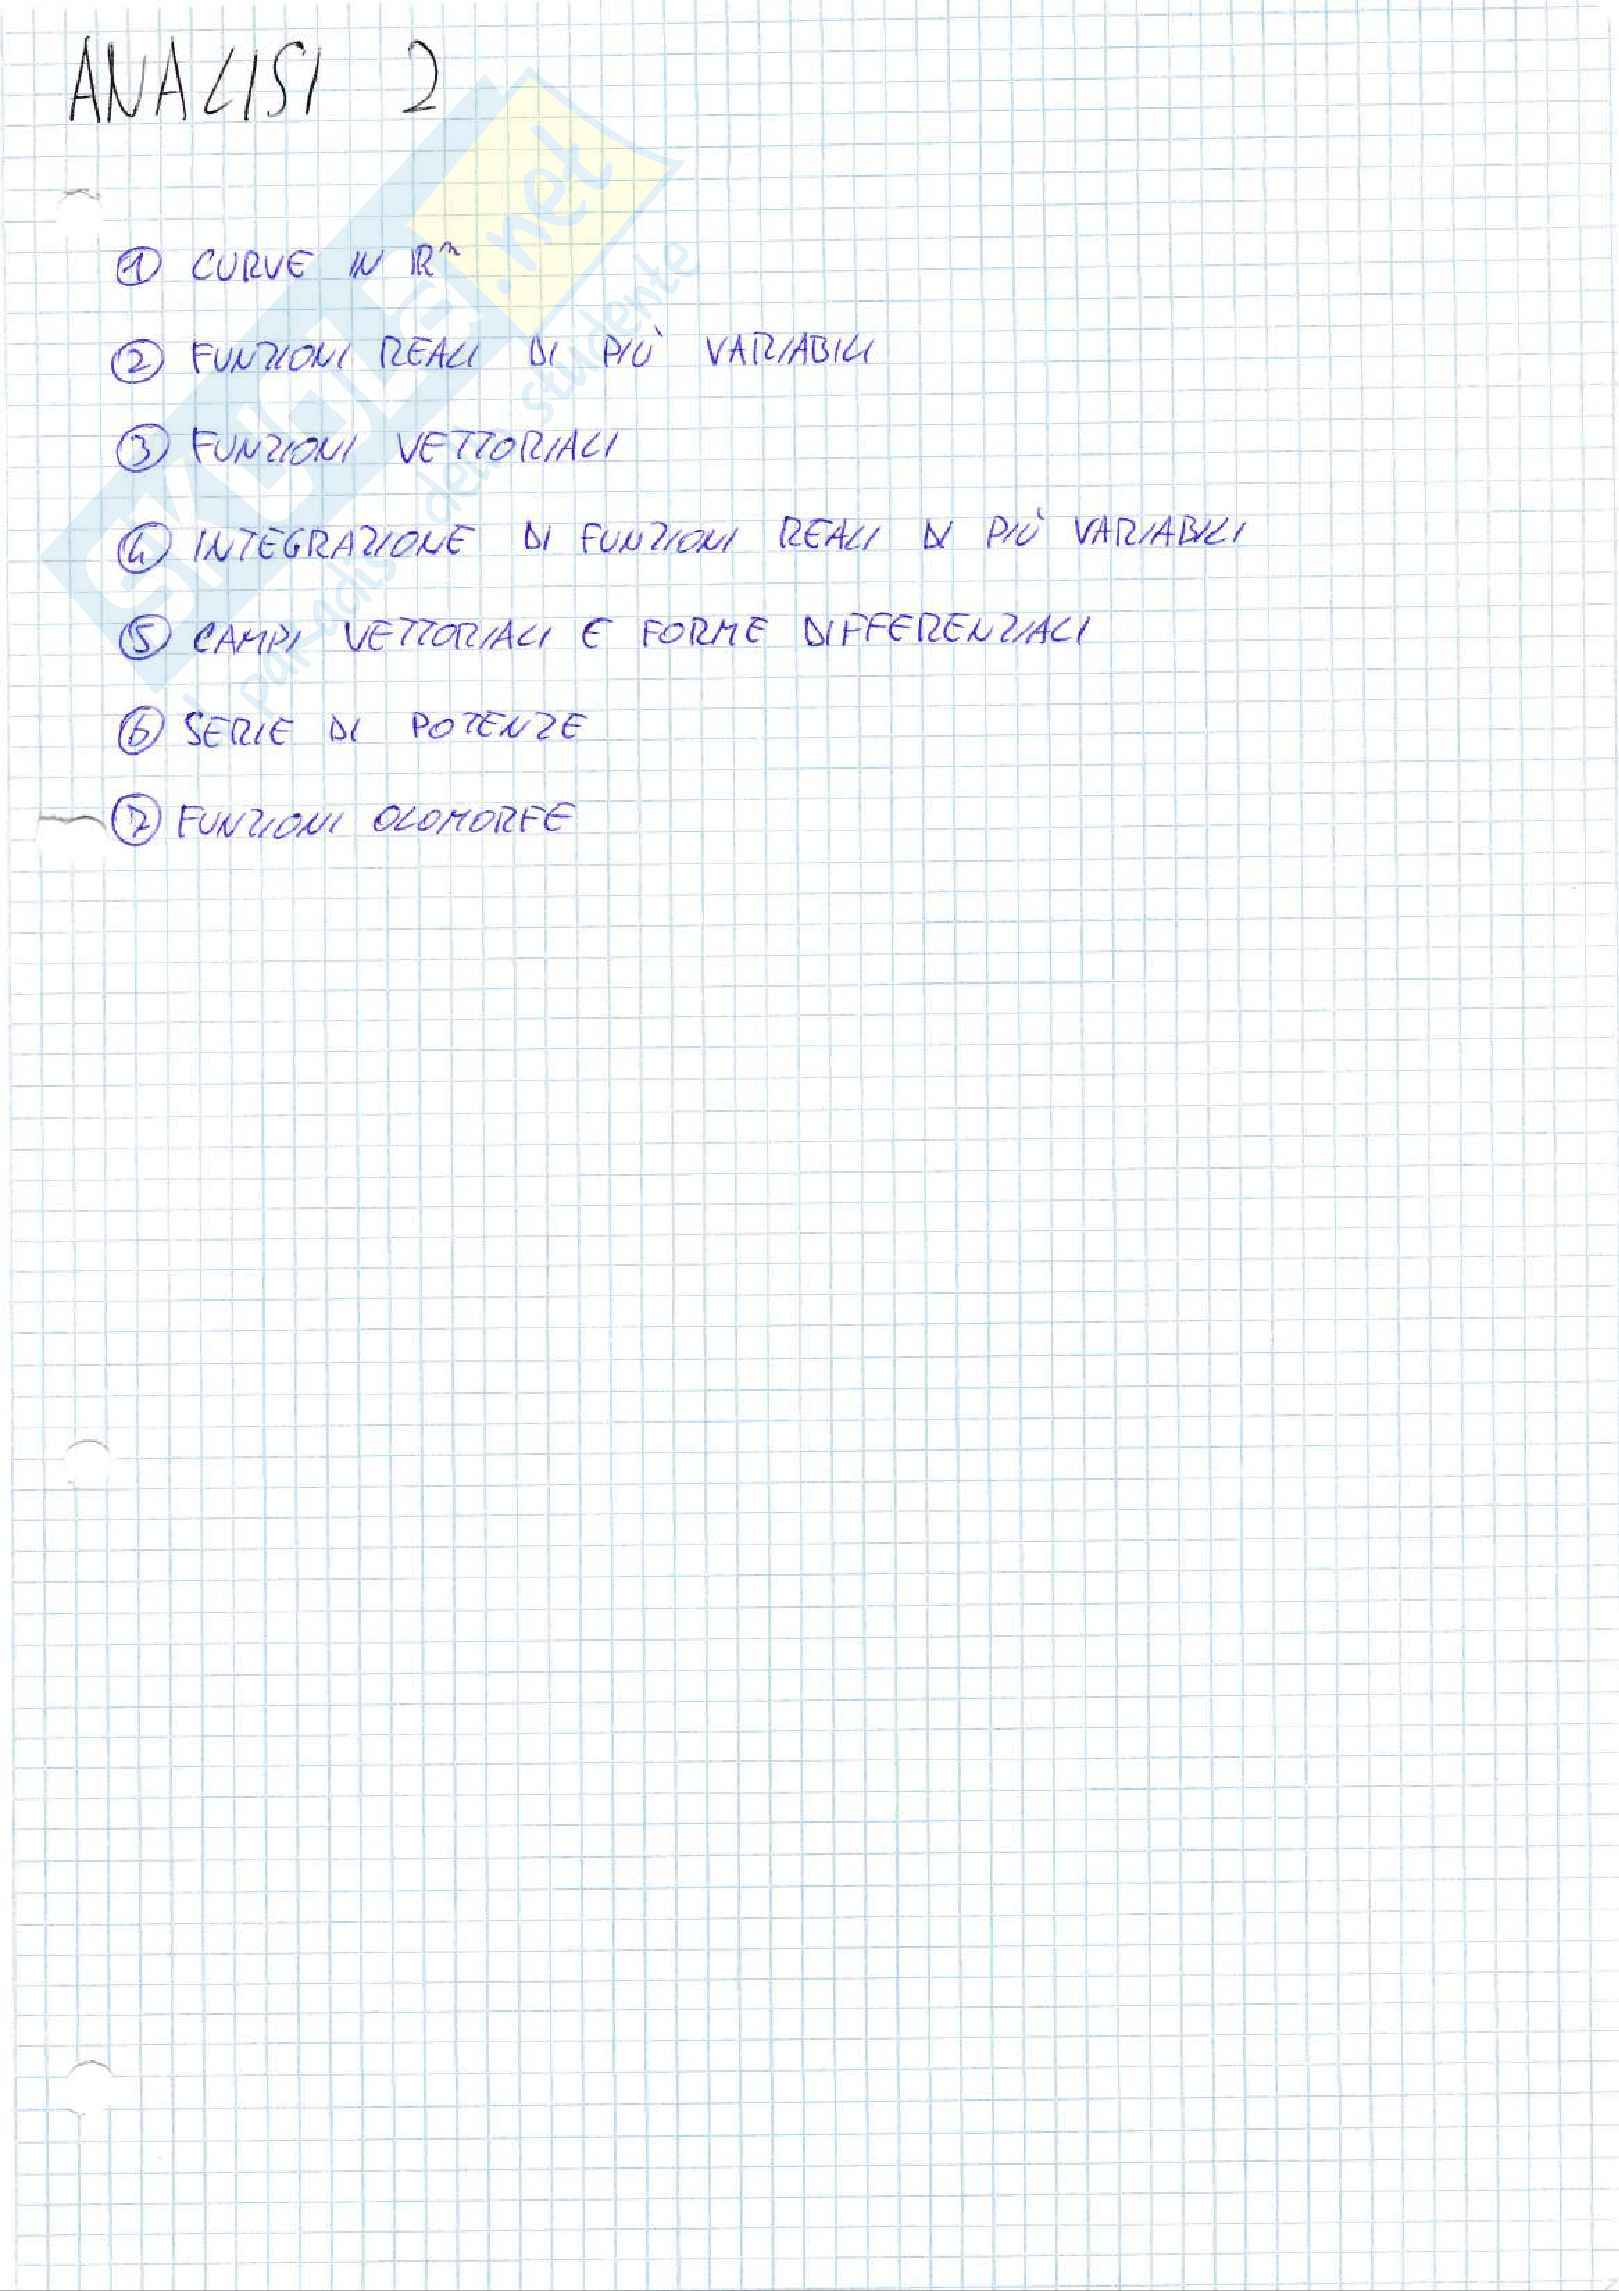 ANALISI 2
① CURVE IN ℝⁿ
② FUNZIONI REALI DI PIÙ VARIABILI
③ FUNZIONI VETTORIALI
④ INTEGRAZIONE DI FUNZIONI REALI DI PIÙ VARIABILI
⑤ CAMPI VETTORIALI E FORME DIFFERENZIALI
⑥ SERIE DI POTENZE
⑦ FUNZIONI OLOMORFE
SKUOLA.net
il paradiso dello studente